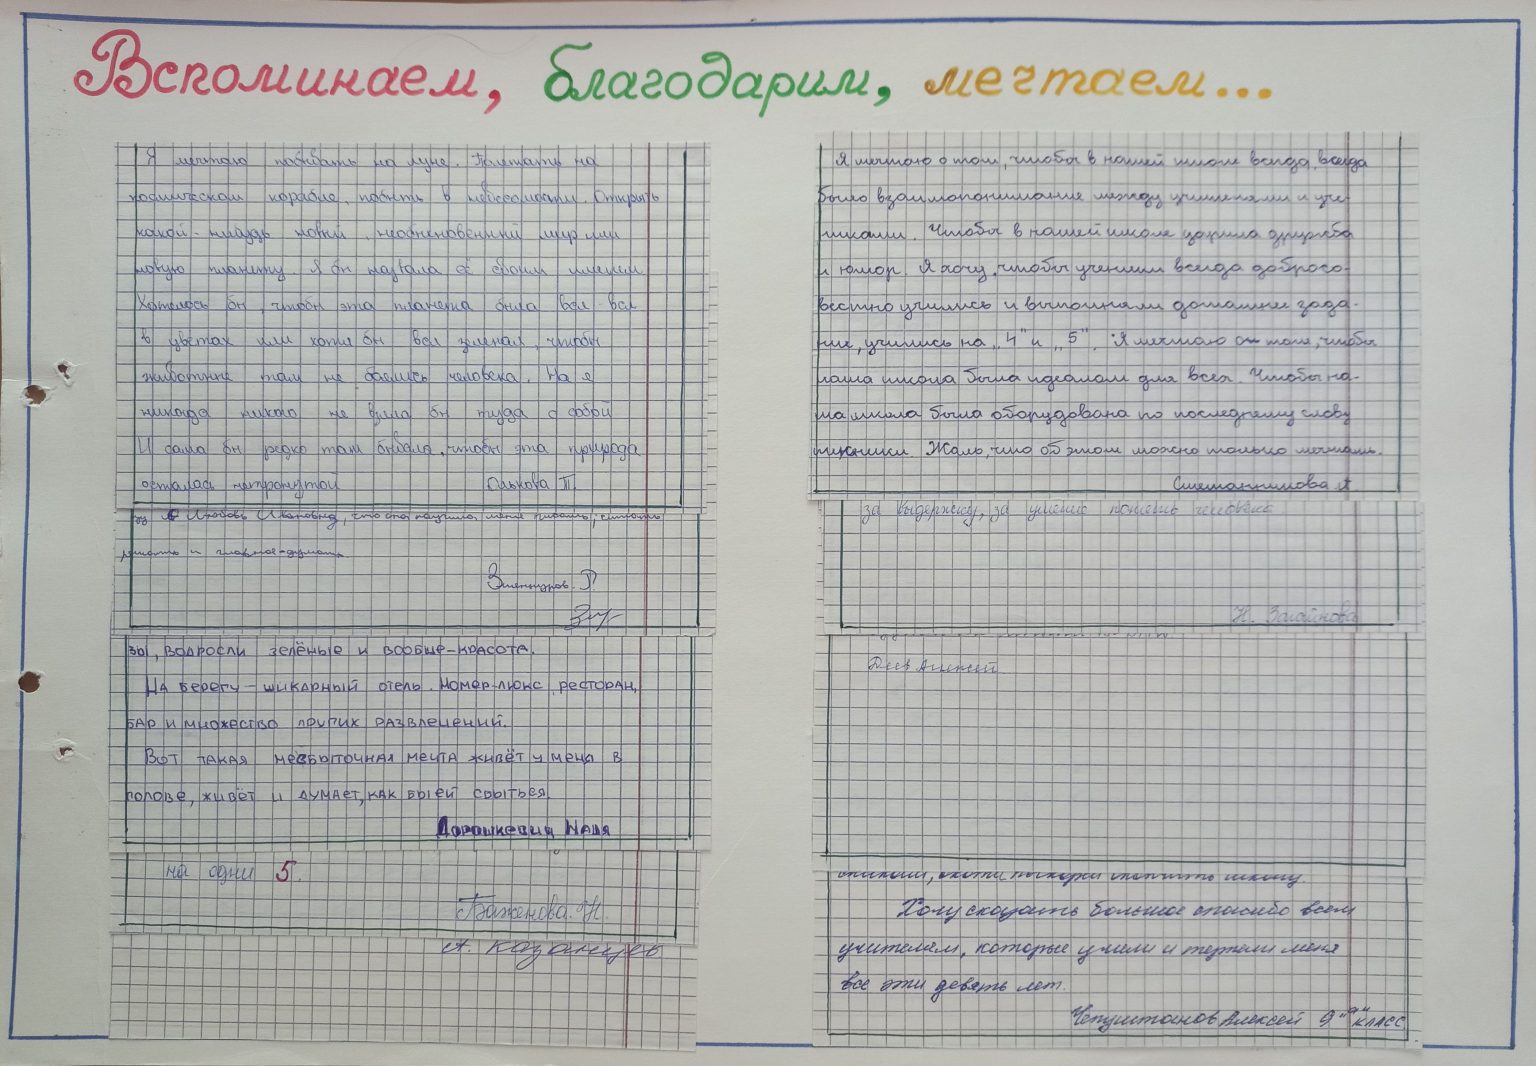 Вспоминаем, благодарим, мечтаем...
Я мечтаю побывать на луне. Полетать на
космическом корабле, побыть в невесомости. Открыть
какой-нибудь новый, необыкновенный мир или
новую планету. Я бы назвала её своим именем
Хотелось бы, чтобы эта планета была вся-вся
в цветах или хотя бы вся зеленая, чтобы
животные там не боялись человека. Но я
никогда никого не взяла бы туда с собой
И сама бы редко там бывала, чтобы эта природа
осталась нетронутой
Любовь Ивановна, что она научила меня писать, считать
решать и главное-думать
зы, водросли зелёные и вообще-красота.
На берегу-шикарный отель. Номер-люкс, ресторан,
бар и множество других развлечений.
Вот такая несбыточная мечта живёт у меня в
голове, живёт и думает, как бы ей сбыться.
Дорошкевич Надя
на одни 5.
Баженова. Н.
А. Казанцев
Я мечтаю о том, чтобы в нашей школе всегда, всегда
было взаимопонимание между учителями и уче-
никами. Чтобы в нашей школе царила дружба
и юмор. Я хочу, чтобы ученики всегда добросо-
вестно учились и выполняли домашнее зада-
ние, учились на „4" и „5". Я мечтаю о том, чтобы
наша школа была идеалом для всех. Чтобы на-
ша школа была оборудована по последнему слову
техники. Жаль, что об этом можно только мечтать.
Сметанникова А
за выдержку, за умение понять человека
Н. Загайнова
Деев Алексей
Хочу сказать большое спасибо всем
учителям, которые учили и терпели меня
все эти девять лет.
Чепуштанов Алексей 9 "а" класс